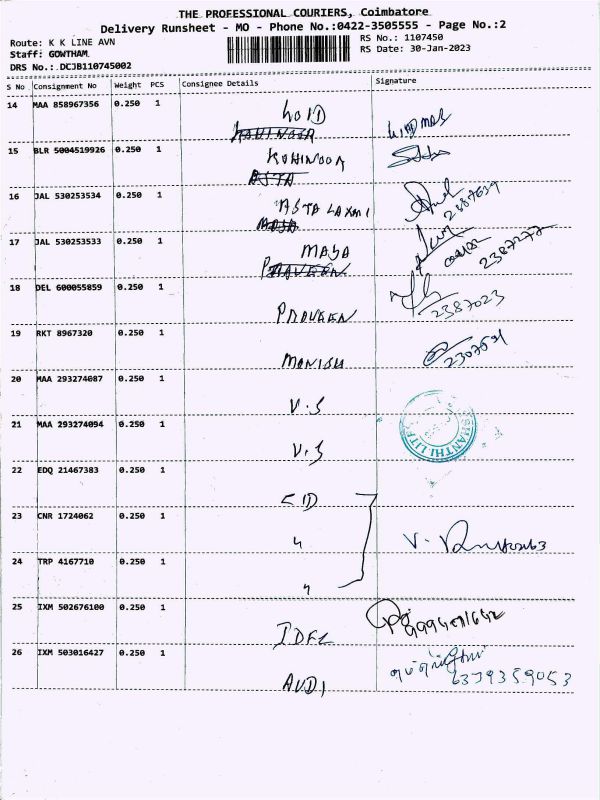 THE PROFESSIONAL COURIERS, Coimbatore
Delivery Runsheet - MO - Phone No.:0422-3505555 - Page No.:2
Route: K K LINE AVN RS No.: 1107450
Staff: GOWTHAM RS Date: 30-Jan-2023
DRS No.:.DCJB110745002
S No Consignment No Weight PCS Consignee Details Signature
14 MAA 858967356 0.250 1
KOHINOOR
15 BLR 5004519926 0.250 1 KOHINOOR
ASTA
16 JAL 530253534 0.250 1 ASTA LAXMI 2387639
MASA
17 JAL 530253533 0.250 1 MASA 2387277
PRAVEEN
18 DEL 600055859 0.250 1 2387023
PRAVEEN
19 RKT 8967320 0.250 1
MANISH
20 MAA 293274087 0.250 1
V.S
21 MAA 293274094 0.250 1 SHANTHI
V.S
22 EDQ 21467383 0.250 1
CID
23 CNR 1724062 0.250 1
"
24 TRP 4167710 0.250 1
"
25 IXM 502676100 0.250 1
IDFC
26 IXM 503016427 0.250 1 6379359053
AUDI